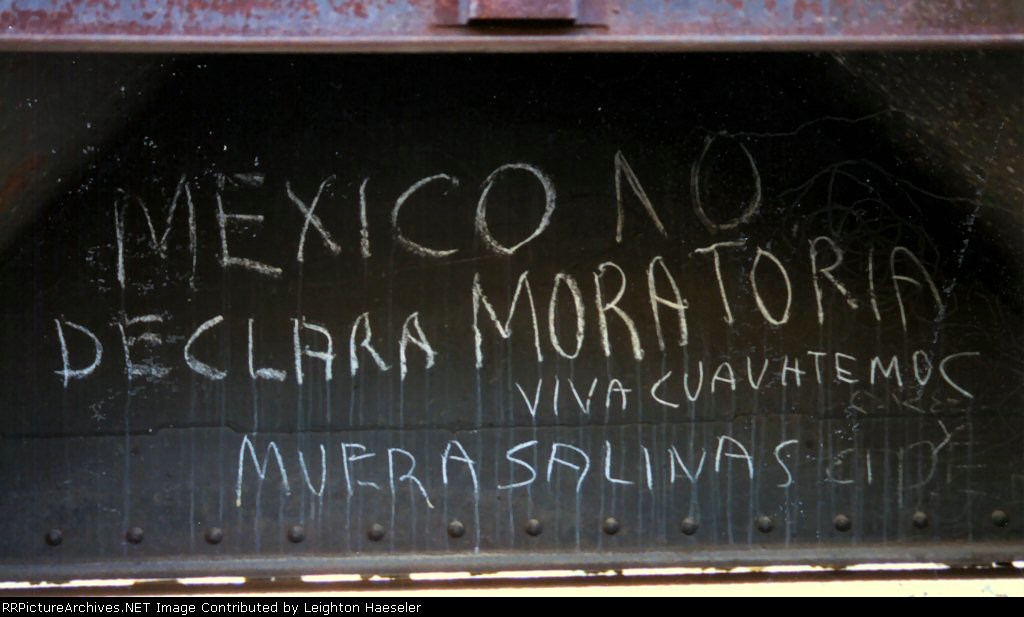 MEXICO NO
DECLARA MORATORIA
VIVA CUAUHTEMOC
MUERA SALINAS
RRPictureArchives.NET Image Contributed by Leighton Haeseler